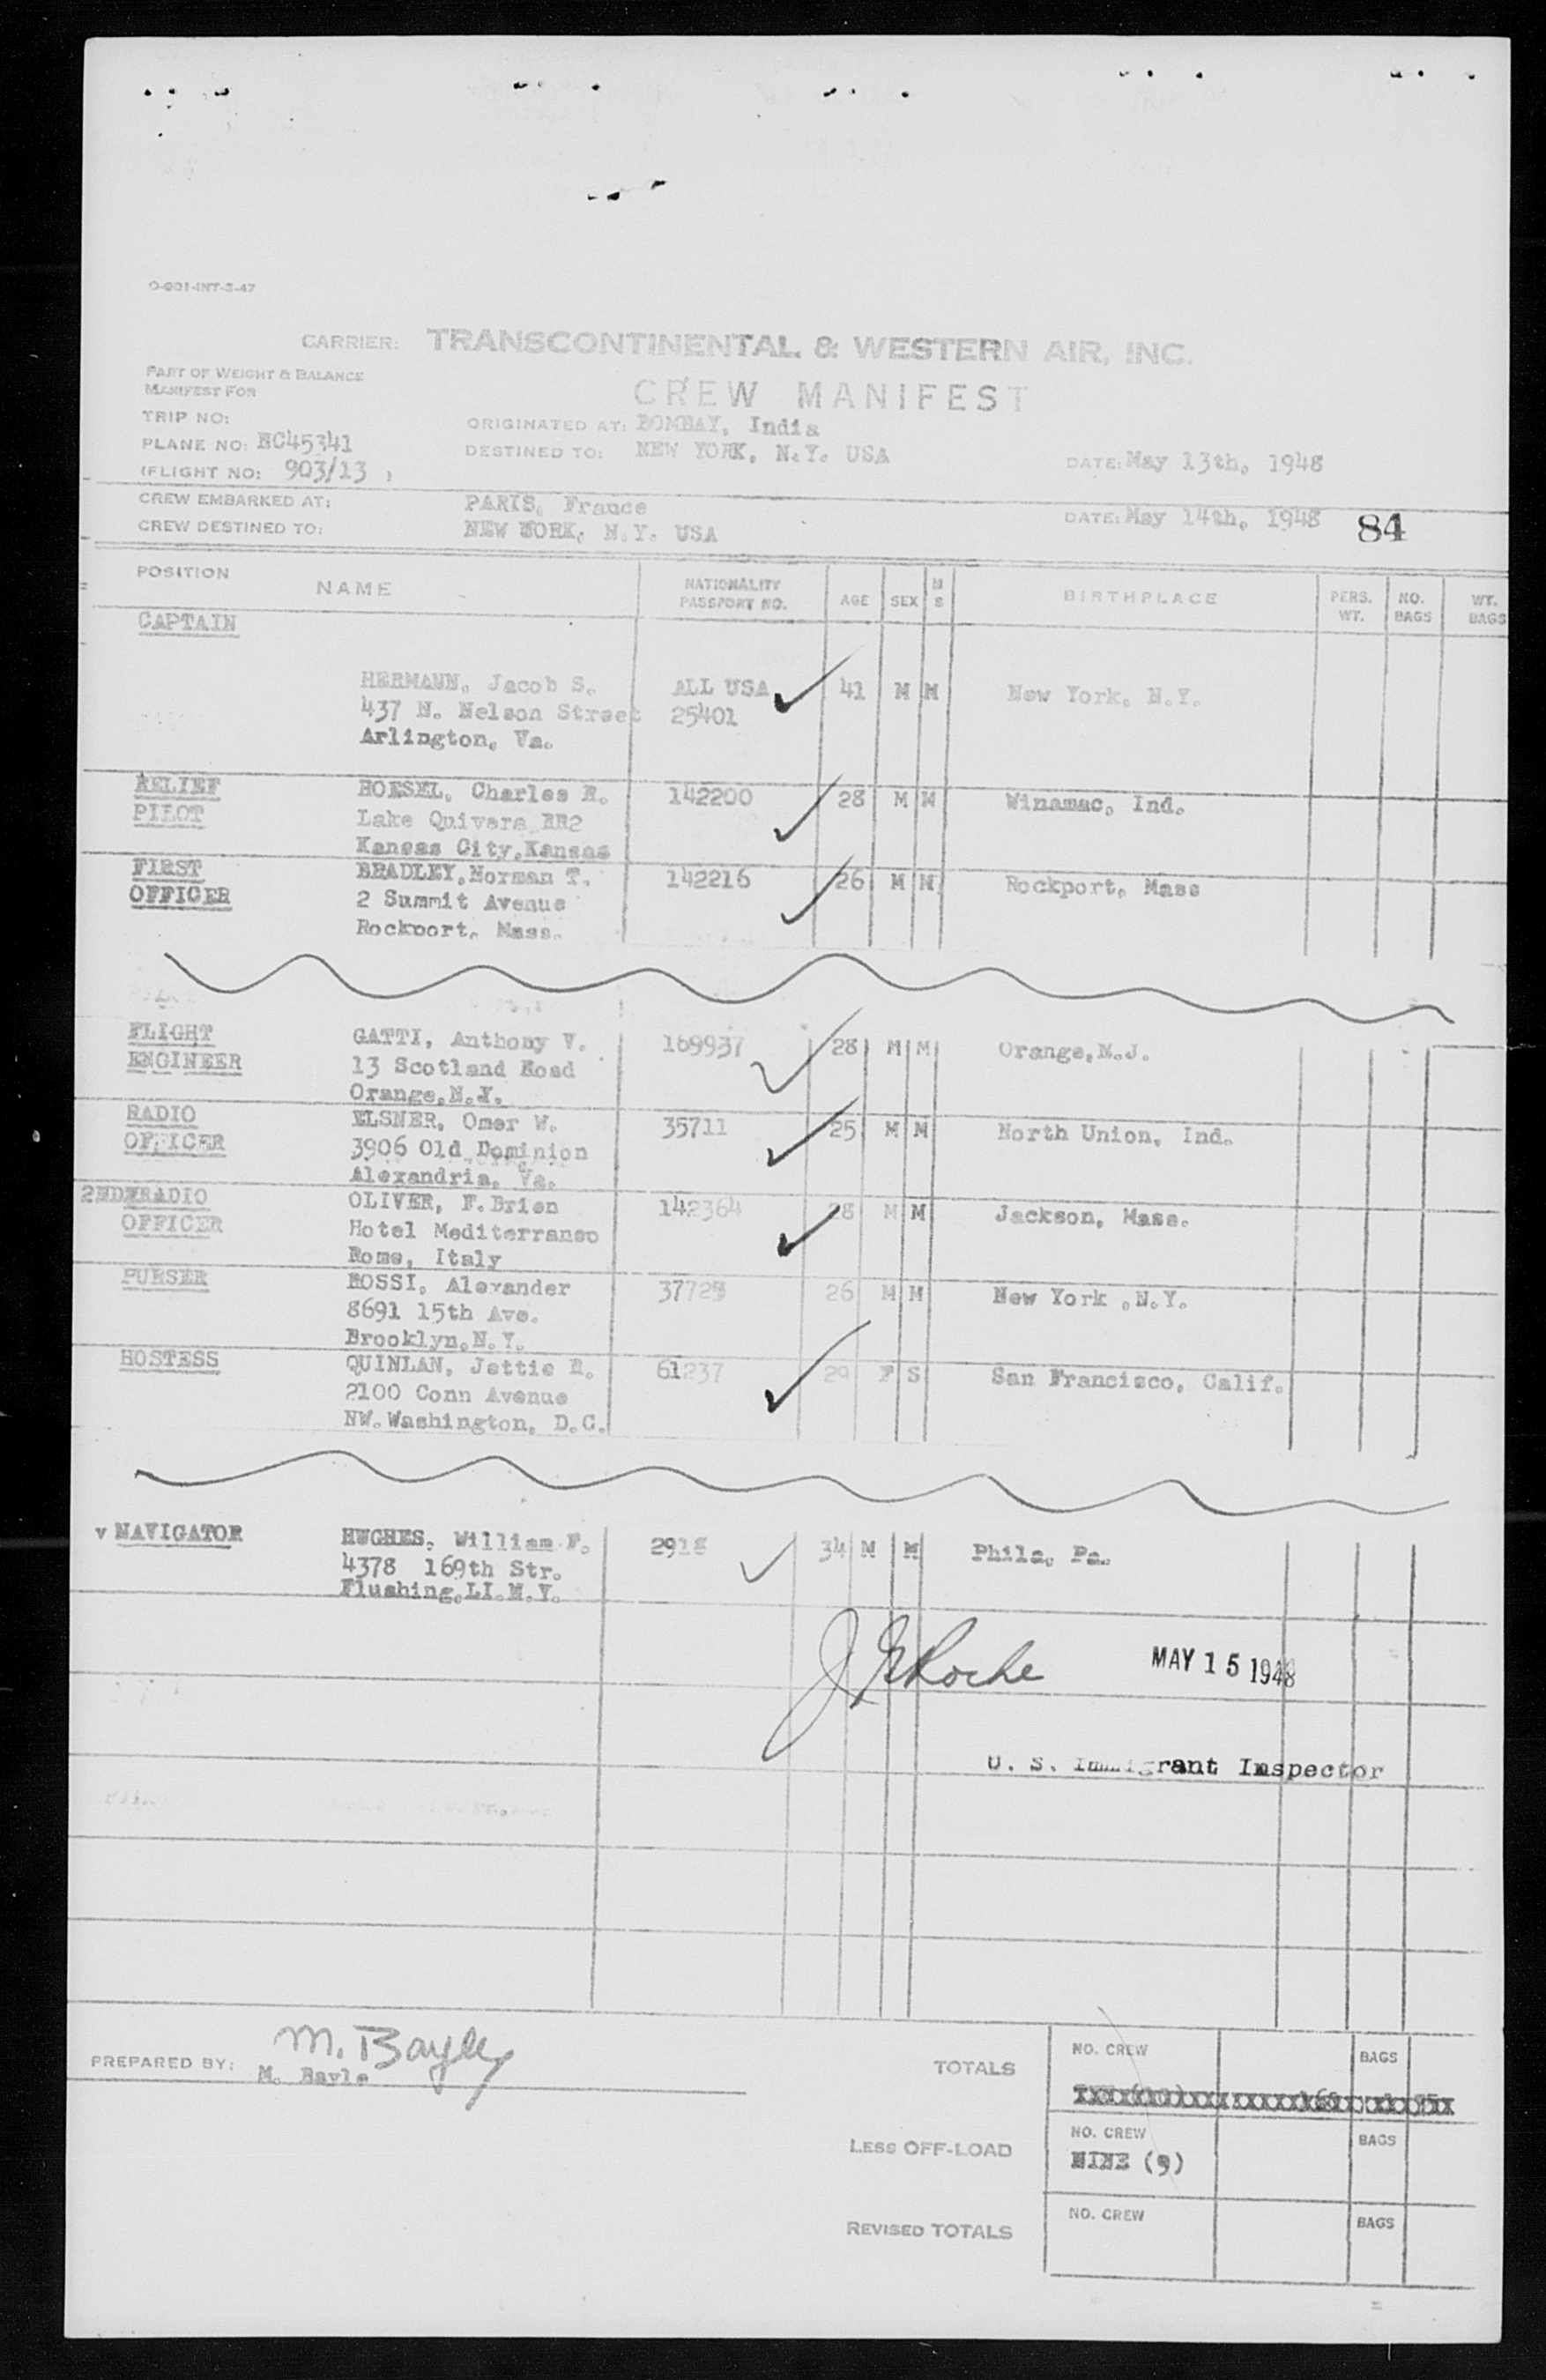 O-901-INT-3-47
CARRIER: TRANSCONTINENTAL & WESTERN AIR, INC.
PART OF WEIGHT & BALANCE
MANIFEST FOR
CREW MANIFEST
TRIP NO:
ORIGINATED AT: BOMBAY, India
PLANE NO: NC45341
DESTINED TO: NEW YORK, N.Y. USA
DATE: May 13th, 1948
(FLIGHT NO: 903/13 )
CREW EMBARKED AT: PARIS, France
CREW DESTINED TO: NEW YORK, N.Y. USA
DATE: May 14th, 1948 84
POSITION NAME NATIONALITY PASSPORT NO. AGE SEX M S BIRTHPLACE PERS. WT. NO. BAGS WT. BAGS
CAPTAIN
HERMANN, Jacob S. ALL USA 41 M M New York, N.Y.
437 N. Nelson Street 25401
Arlington, Va.
RELIEF HOESEL, Charles R. 142200 28 M M Winamac, Ind.
PILOT Lake Quivera RR2
Kansas City,Kansas
FIRST BRADLEY,Norman T. 142216 26 M M Rockport, Mass
OFFICER 2 Summit Avenue
Rockport, Mass.
FLIGHT GATTI, Anthony V. 169937 28 M M Orange,N.J.
ENGINEER 13 Scotland Road
Orange,N.J.
RADIO ELSNER, Omer W. 35711 25 M M North Union, Ind.
OFFICER 3906 Old Dominion
Alexandria, Va.
2ND RADIO OLIVER, F.Brien 142364 28 M M Jackson, Mass.
OFFICER Hotel Mediterraneo
Rome, Italy
PURSER ROSSI, Alexander 26 M M New York ,N.Y.
8691 15th Ave.
Brooklyn,N.Y.
HOSTESS QUINLAN, Jettie R. 61237 29 F S San Francisco, Calif.
2100 Conn Avenue
NW.Washington, D.C.
v NAVIGATOR HUGHES, William F. 34 M M Phila, Pa.
4378 169th Str.
Flushing,LI.N.Y.
J E Roche MAY 15 1948
U. S. Immigrant Inspector
M. Bayle
PREPARED BY: M. Bayle
TOTALS NO. CREW BAGS
LESS OFF-LOAD NO. CREW BAGS
NINE (9)
REVISED TOTALS NO. CREW BAGS